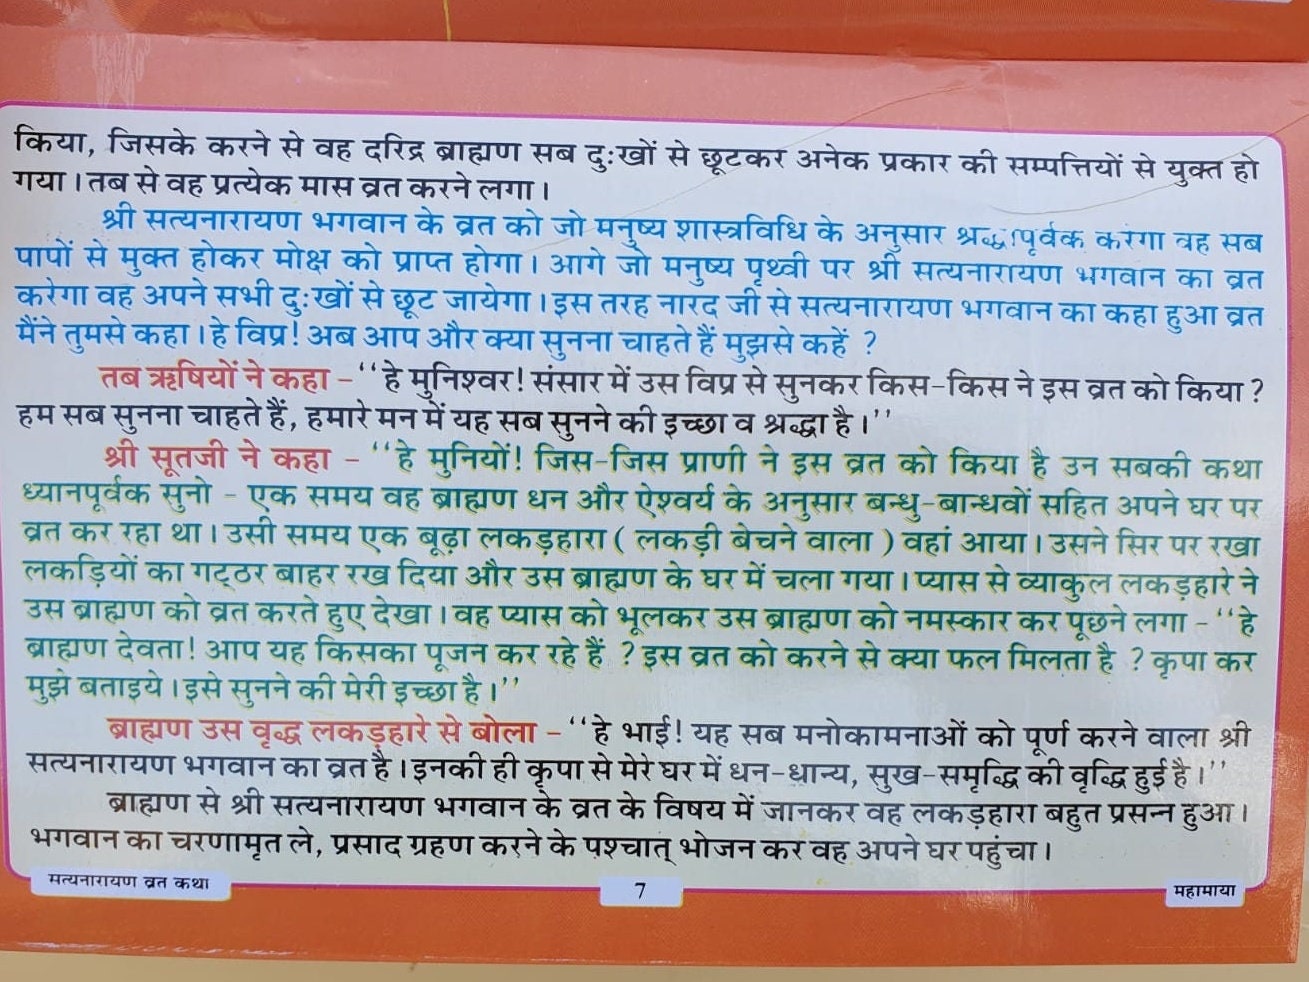 किया, जिसके करने से वह दरिद्र ब्राह्मण सब दुःखों से छूटकर अनेक प्रकार की सम्पत्तियों से युक्त हो
गया। तब से वह प्रत्येक मास व्रत करने लगा।
श्री सत्यनारायण भगवान के व्रत को जो मनुष्य शास्त्रविधि के अनुसार श्रद्धापूर्वक करेगा वह सब
पापों से मुक्त होकर मोक्ष को प्राप्त होगा। आगे जो मनुष्य पृथ्वी पर श्री सत्यनारायण भगवान का व्रत
करेगा वह अपने सभी दुःखों से छूट जायेगा। इस तरह नारद जी से सत्यनारायण भगवान का कहा हुआ व्रत
मैंने तुमसे कहा। हे विप्र! अब आप और क्या सुनना चाहते हैं मुझसे कहें ?
तब ऋषियों ने कहा – ‘‘हे मुनिश्वर! संसार में उस विप्र से सुनकर किस-किस ने इस व्रत को किया?
हम सब सुनना चाहते हैं, हमारे मन में यह सब सुनने की इच्छा व श्रद्धा है।’’
श्री सूतजी ने कहा – ‘‘हे मुनियों! जिस-जिस प्राणी ने इस व्रत को किया है उन सबकी कथा
ध्यानपूर्वक सुनो – एक समय वह ब्राह्मण धन और ऐश्वर्य के अनुसार बन्धु-बान्धवों सहित अपने घर पर
व्रत कर रहा था। उसी समय एक बूढ़ा लकड़हारा ( लकड़ी बेचने वाला ) वहां आया। उसने सिर पर रखा
लकड़ियों का गट्ठर बाहर रख दिया और उस ब्राह्मण के घर में चला गया। प्यास से व्याकुल लकड़हारे ने
उस ब्राह्मण को व्रत करते हुए देखा। वह प्यास को भूलकर उस ब्राह्मण को नमस्कार कर पूछने लगा – ‘‘हे
ब्राह्मण देवता! आप यह किसका पूजन कर रहे हैं ? इस व्रत को करने से क्या फल मिलता है ? कृपा कर
मुझे बताइये। इसे सुनने की मेरी इच्छा है।’’
ब्राह्मण उस वृद्ध लकड़हारे से बोला – ‘‘हे भाई! यह सब मनोकामनाओं को पूर्ण करने वाला श्री
सत्यनारायण भगवान का व्रत है। इनकी ही कृपा से मेरे घर में धन-धान्य, सुख-समृद्धि की वृद्धि हुई है।’’
ब्राह्मण से श्री सत्यनारायण भगवान के व्रत के विषय में जानकर वह लकड़हारा बहुत प्रसन्न हुआ।
भगवान का चरणामृत ले, प्रसाद ग्रहण करने के पश्चात् भोजन कर वह अपने घर पहुंचा।
सत्यनारायण व्रत कथा
7
महामाया